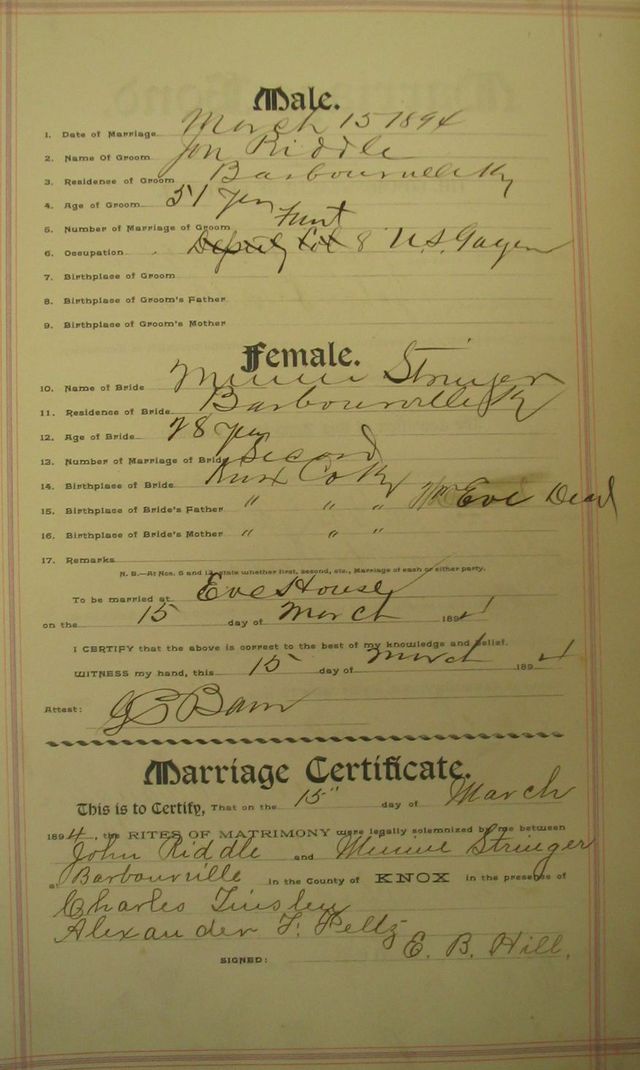 Male.
1. Date of Marriage March 15 1894
2. Name Of Groom Jon Riddle
3. Residence of Groom Barbourville Ky
4. Age of Groom 51 yrs
5. Number of Marriage of Groom First
6. Occupation Deputy Col & U.S. Gager
7. Birthplace of Groom
8. Birthplace of Groom's Father
9. Birthplace of Groom's Mother
Female.
10. Name of Bride Minnie Stringer
11. Residence of Bride Barbourville Ky
12. Age of Bride 28 yrs
13. Number of Marriage of Bride Second
14. Birthplace of Bride Knox Co Ky
15. Birthplace of Bride's Father " " " Wm Eve Dead
16. Birthplace of Bride's Mother " " "
17. Remarks
N. B.—At Nos. 5 and 13, state whether first, second, etc., Marriage of each or either party.
To be married at Eve House
on the 15 day of March 1894
I CERTIFY that the above is correct to the best of my knowledge and belief.
WITNESS my hand, this 15 day of March 1894
Attest:
Marriage Certificate.
This is to Certify, That on the 15" day of March
1894, the RITES OF MATRIMONY were legally solemnized by me between
John Riddle and Minnie Stringer
at Barbourville in the County of KNOX in the presence of
Charles Tinsley
Alexander F. Peltz
E. B. Hill.
SIGNED: